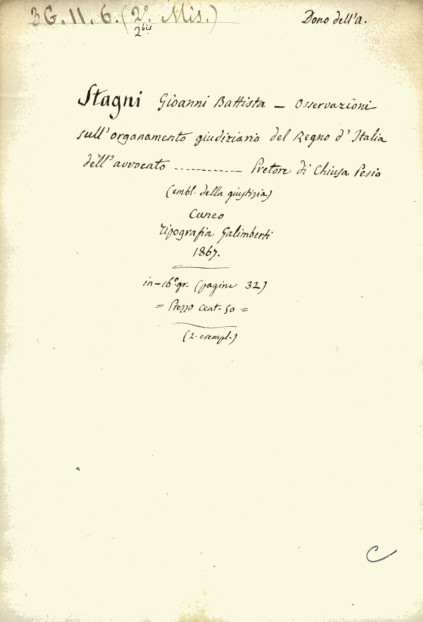 3G. 11. 6. (2ª Mis.)
2bis
Dono dell'a.
Stagni Gioanni Battista — Osservazioni
sull'organamento giudiziario del Regno d'Italia
dell'avvocato ............ Pretore di Chiusa Pesio
(embl. della giustizia)
Cuneo
Tipografia Galimberti
1867.
in-16º gr. (pagine 32)
= Prezzo cent. 50 =
(2 esempl.)
C